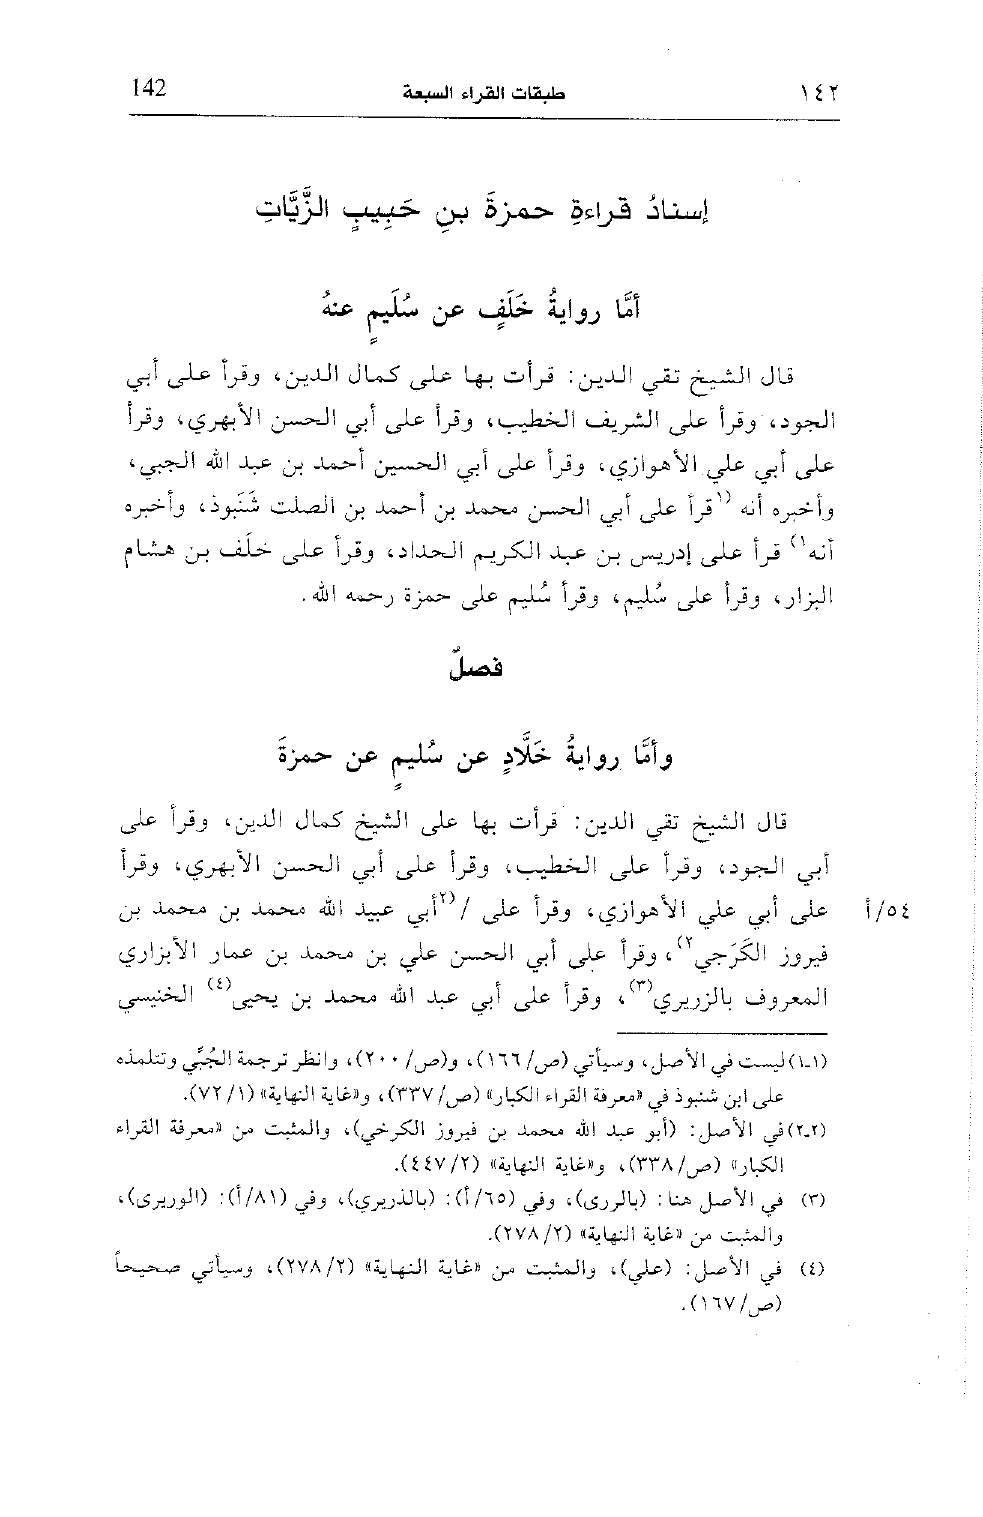 ١٤٢ طبقات القراء السبعة 142
إسنادُ قراءةِ حمزةَ بنِ حَبِيبٍ الزَّيَّاتِ
أمَّا روايةُ خَلَفٍ عن سُلَيمٍ عنهُ
قال الشيخ تقي الدين: قرأت بها على كمال الدين، وقرأ على أبي
الجود، وقرأ على الشريف الخطيب، وقرأ على أبي الحسن الأبهري، وقرأ
على أبي علي الأهوازي، وقرأ على أبي الحسين أحمد بن عبد الله الجبي،
وأخبره أنه (١قرأ على أبي الحسن محمد بن أحمد بن الصلت شَنَبُوذ، وأخبره
أنه١) قرأ على إدريس بن عبد الكريم الحداد، وقرأ على خلَف بن هشام
البزار، وقرأ على سُليم، وقرأ سُليم على حمزة رحمه الله.
فصلٌ
وأمَّا روايةُ خَلَّادٍ عن سُليمٍ عن حمزةَ
قال الشيخ تقي الدين: قرأت بها على الشيخ كمال الدين، وقرأ على
أبي الجود، وقرأ على الخطيب، وقرأ على أبي الحسن الأبهري، وقرأ
٥٤/أ على أبي علي الأهوازي، وقرأ على /(٢أبي عبيد الله محمد بن محمد بن
فيروز الكَرَجي٢)، وقرأ على أبي الحسن علي بن محمد بن عمار الأبزاري
المعروف بالزريري(٣)، وقرأ على أبي عبد الله محمد بن يحيى(٤) الخنيسي
(١-١) ليست في الأصل، وسيأتي (ص/١٦٦)، و(ص/٢٠٠)، وانظر ترجمة الجُبِّي وتتلمذه
على ابن شنبوذ في «معرفة القراء الكبار» (ص/٣٣٧)، و«غاية النهاية» (١/ ٧٢).
(٢-٢) في الأصل: (أبو عبد الله محمد بن فيروز الكرخي)، والمثبت من «معرفة القراء
الكبار» (ص/٣٣٨)، و«غاية النهاية» (٢/ ٤٤٧).
(٣) في الأصل هنا: (بالررى)، وفي (٦٥/أ): (بالذريري)، وفي (٨١/أ): (الوريرى)،
والمثبت من «غاية النهاية» (٢/ ٢٧٨).
(٤) في الأصل: (علي)، والمثبت من «غاية النهاية» (٢/ ٢٧٨)، وسيأتي صحيحاً
(ص/١٦٧).